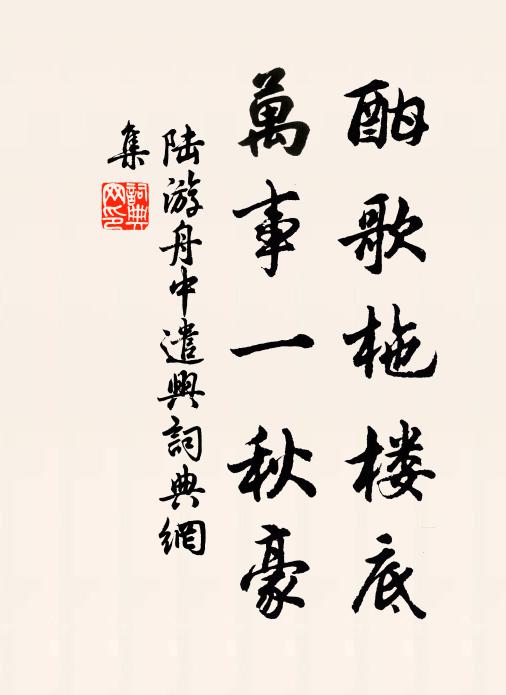 酣歌柂楼底
萬事一秋豪
陆游舟中遣興詞典網
集
詞典
网印